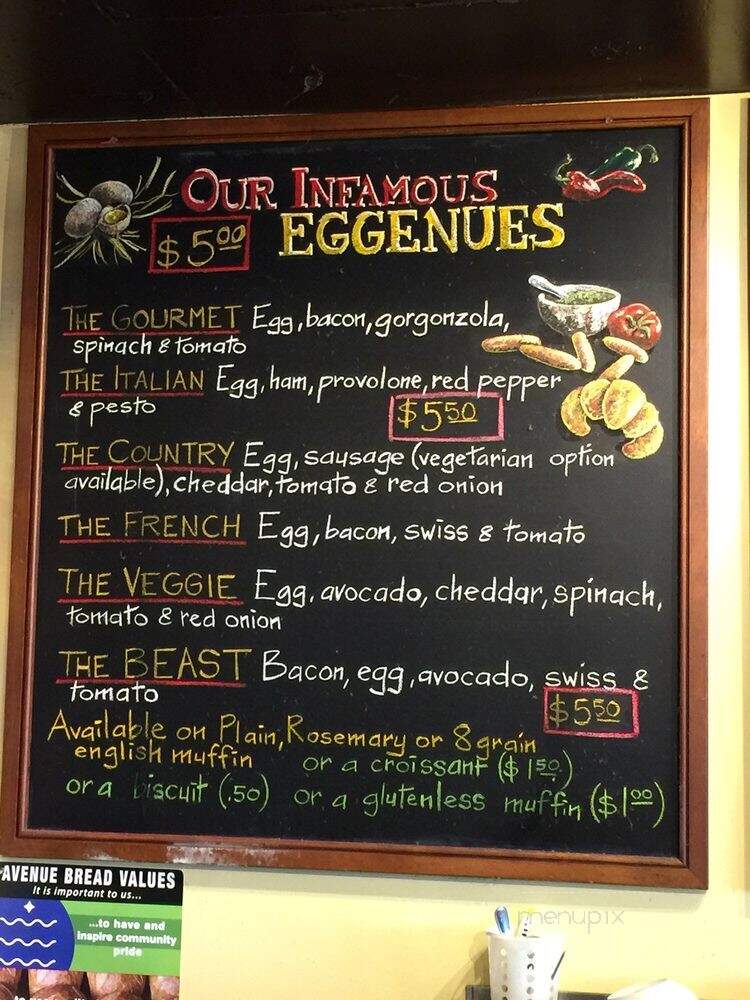 OUR INFAMOUS
$5.00 EGGENUES
THE GOURMET Egg, bacon, gorgonzola,
spinach & tomato
THE ITALIAN Egg, ham, provolone, red pepper
& pesto $5.50
THE COUNTRY Egg, sausage (vegetarian option
available), cheddar, tomato & red onion
THE FRENCH Egg, bacon, swiss & tomato
THE VEGGIE Egg, avocado, cheddar, spinach,
tomato & red onion
THE BEAST Bacon, egg, avocado, swiss &
tomato $5.50
Available on Plain, Rosemary or 8 grain
english muffin or a croissant ($1.50)
or a biscuit (.50) or a glutenless muffin ($1.00)
AVENUE BREAD VALUES
It is important to us...
...to have and
inspire community
pride
menupix